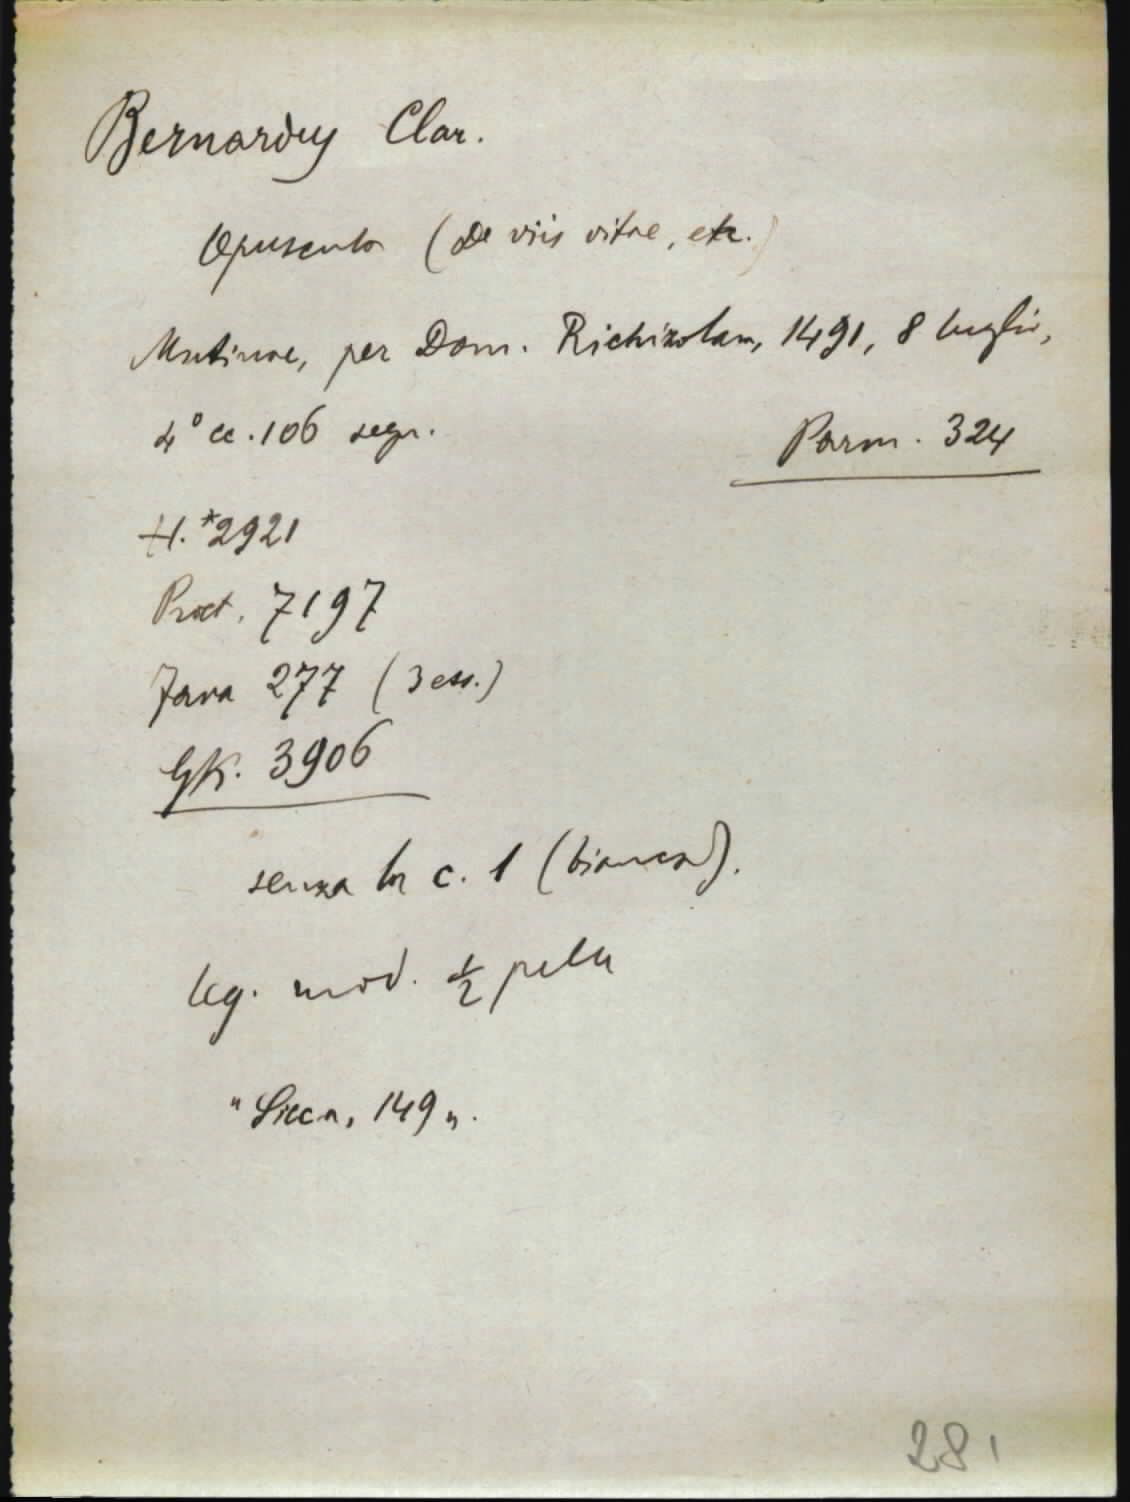 Bernardus Clar.
Opuscula (De viis vitae, etc.)
Mutinae, per Dom. Richizolam, 1491, 8 luglio,
4° cc. 106 segn.
Parm. 324
H. *2921
Proct. 7197
Fava 277 (3 ess.)
GK. 3906
senza la c. 1 (bianca).
Leg. mod. ½ pelle
"Sicca, 149".
281